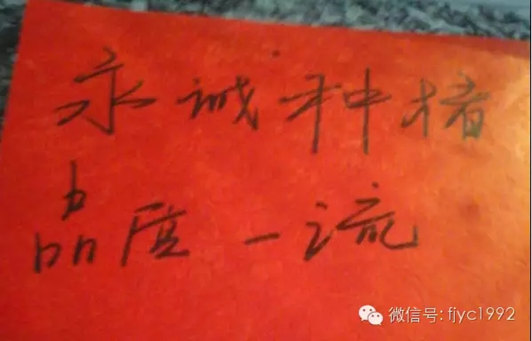 永诚种猪
品质一流
微信号: fjyc1992